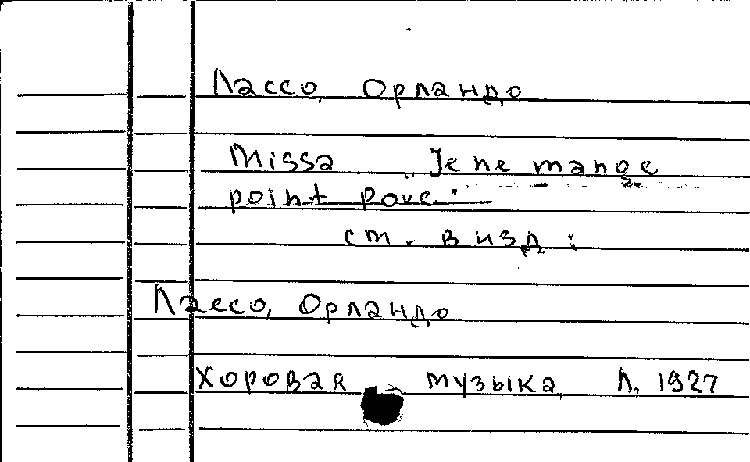 Лассо, Орландо
Missa „Je ne mange
point pouc“
см. в изд:
Лассо, Орландо
Хоровая музыка, Л, 1927